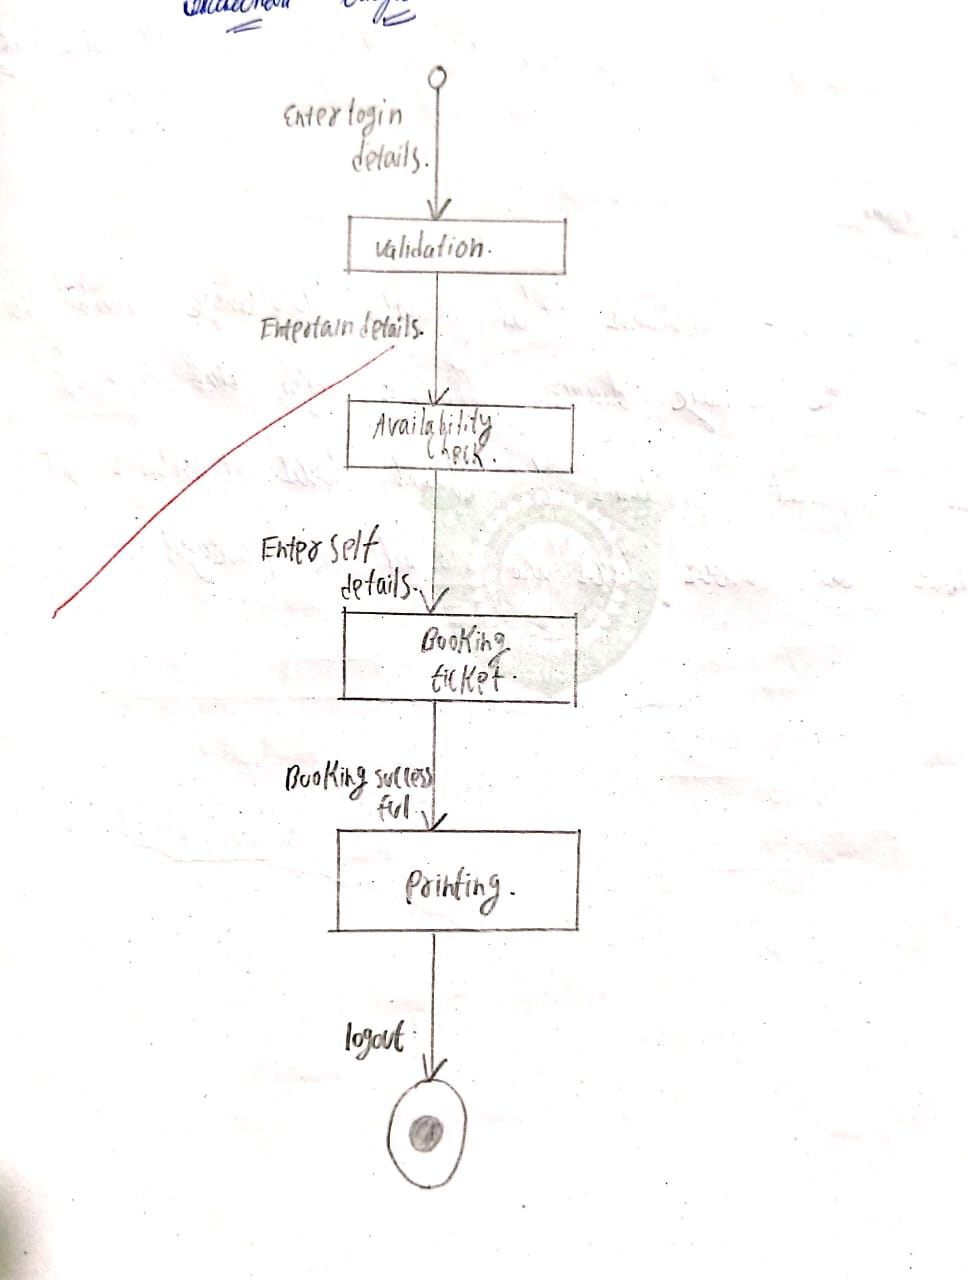 Enter login
details.
validation.
Entertain details.
Availability
check.
Enter self
details.
Booking
ticket.
Booking success
ful.
printing.
logout